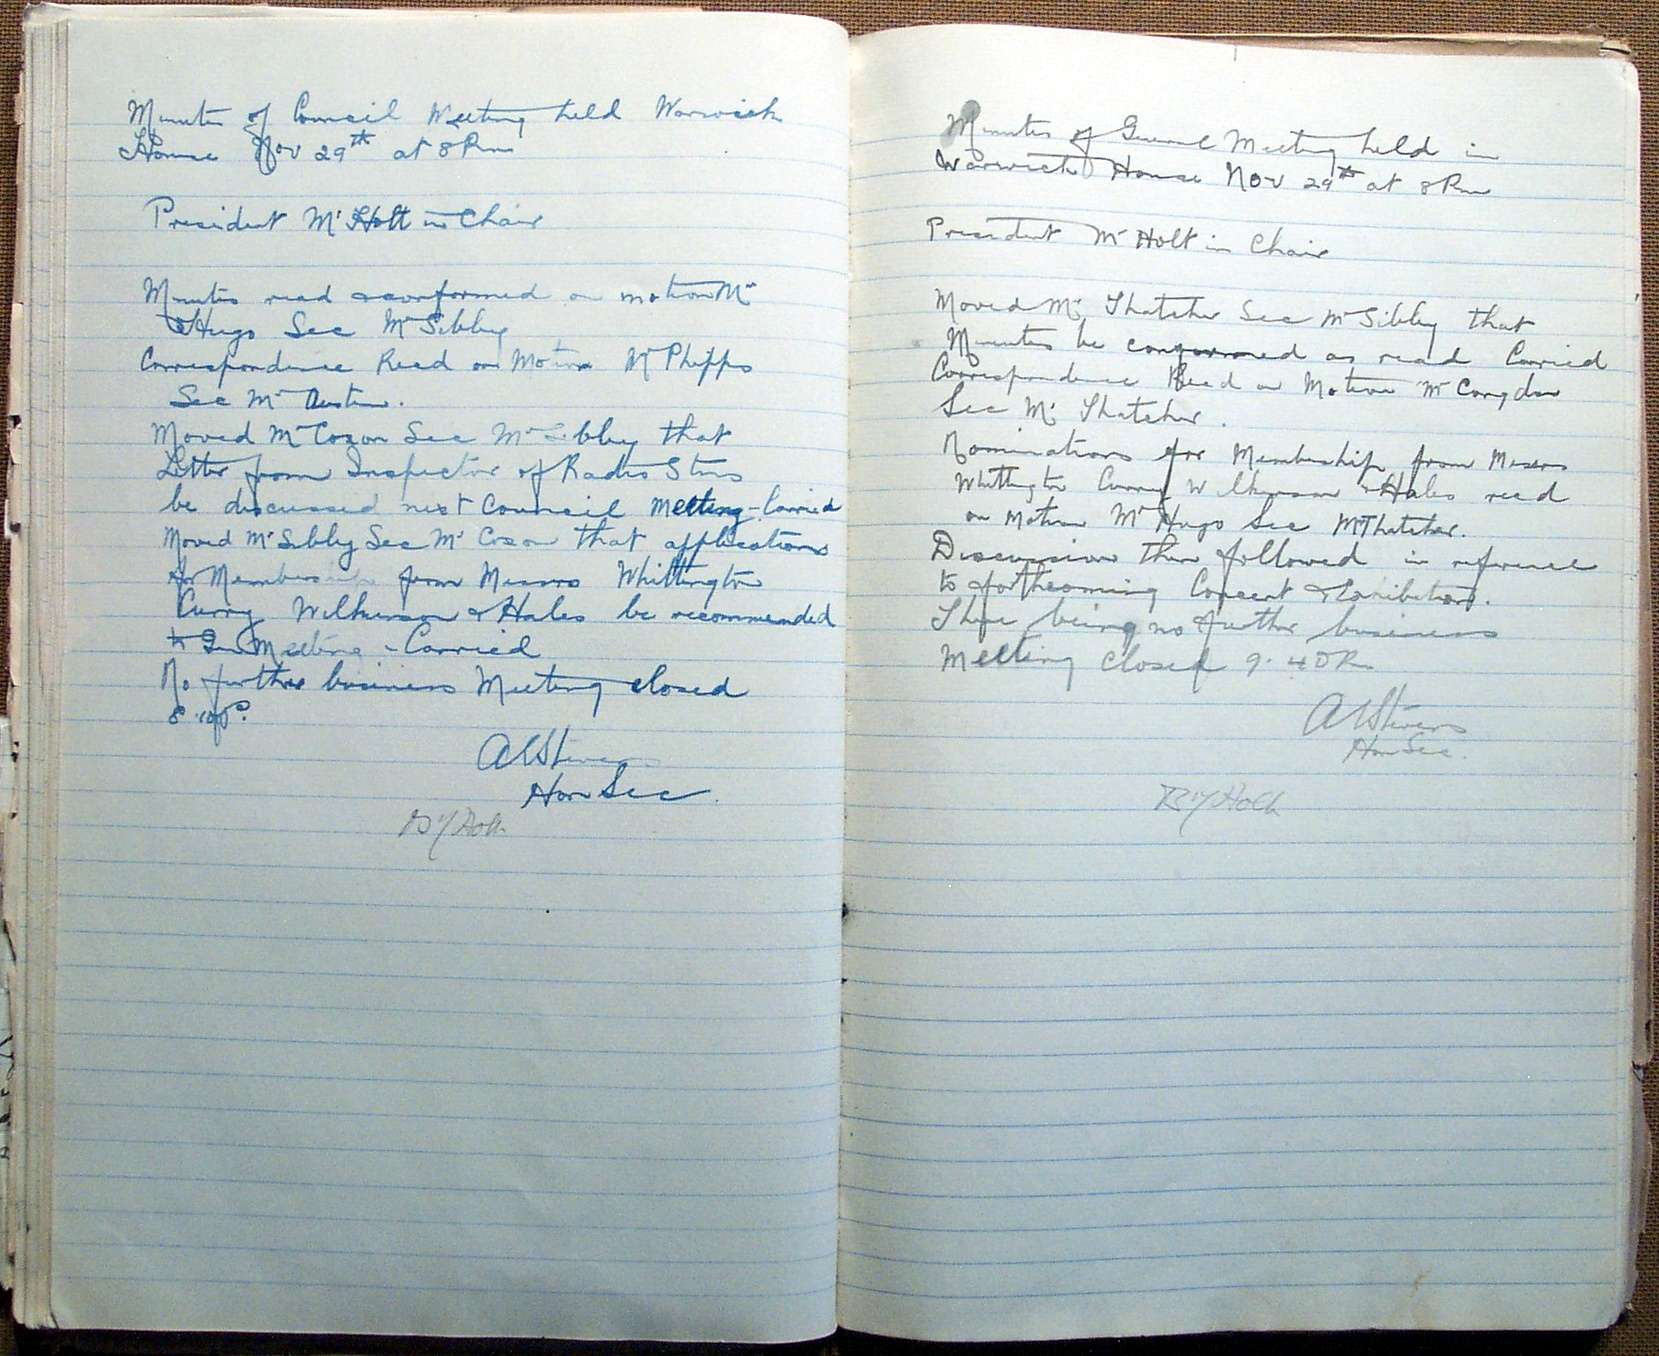 Minutes of Council Meeting held Warwick
House Nov 29th at 8 Pm
President Mr Holt in Chair
Minutes read & confirmed on motion Mr
Hugo Sec Mr Sibley
Correspondence Read on Motion Mr Phipps
Sec Mr Austin.
Moved Mr Coxon Sec Mr Sibley that
Letter from Inspector of Radio Stns
be discussed next Council Meeting - Carried
Moved Mr Sibley Sec Mr Coxon that applications
for Membership from Messrs Whittington
Curry Wilkinson & Hales be recommended
to Gen Meeting - Carried
No further business Meeting closed
8.
A W Stevens
Hon Sec.
Holt
Minutes of General Meeting held in
Warwick House Nov 29th at 8 Pm
President Mr Holt in Chair
Moved Mr Thatcher Sec Mr Sibley that
Minutes be confirmed as read Carried
Correspondence Read on Motion Mr Congdon
Sec Mr Thatcher.
Nominations for Membership from Messrs
Whittington Curry Wilkinson & Hales read
on motion Mr Hugo Sec Mr Thatcher.
Discussion then followed in reference
to forthcoming Concert & Exhibition.
There being no further business
Meeting closed 9.40 Pm
A W Stevens
Hon Sec.
Holt